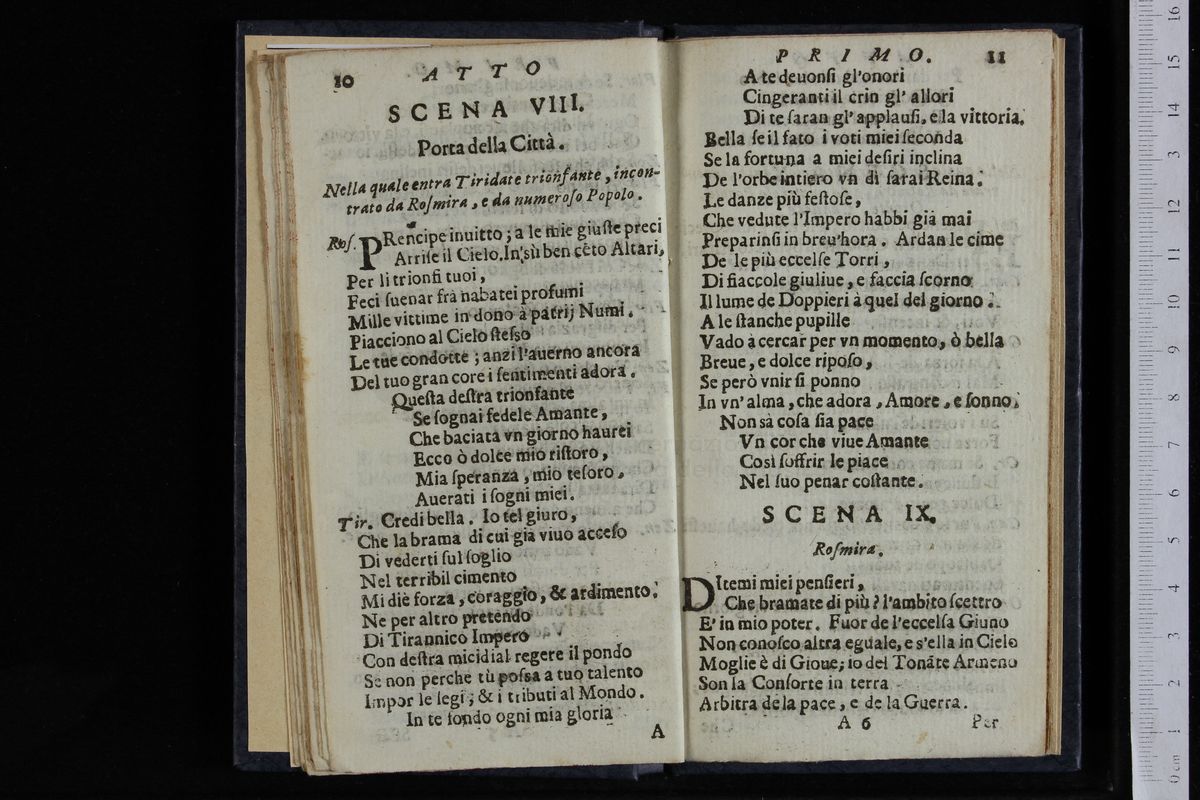 10 ATTO
SCENA VIII.
Porta della Città.
Nella quale entra Tiridate trionfante, incon-
trato da Roſmira, e da numeroſo Popolo.
Roſ. PRencipe inuitto; a le mie giuſte preci
Arriſe il Cielo. In sù ben cẽto Altari,
Per li trionfi tuoi,
Feci ſuenar frà nabatei profumi
Mille vittime in dono à patrij Numi.
Piacciono al Cielo ſteſso
Le tue condotte; anzi l'auerno ancora
Del tuo gran core i ſentimenti adora.
Queſta deſtra trionfante
Se ſognai fedele Amante,
Che baciata vn giorno haurei
Ecco ò dolce mio riſtoro,
Mia ſperanza, mio teſoro,
Auerati i ſogni miei.
Tir. Credi bella. Io tel giuro,
Che la brama di cui già viuo acceſo
Di vederti ſul ſoglio
Nel terribil cimento
Mi diè forza, coraggio, & ardimento.
Ne per altro pretendo
Di Tirannico Impero
Con deſtra micidial regere il pondo
Se non perche tù poſsa a tuo talento
Impor le legi; & i tributi al Mondo.
In te fondo ogni mia gloria
A
PRIMO. 11
A te deuonſi gl'onori
Cingeranti il crin gl' allori
Di te ſaran gl'applauſi, e la vittoria.
Bella ſe il fato i voti miei ſeconda
Se la fortuna a miei deſiri inclina
De l'orbe intiero vn dì ſarai Reina.
Le danze più feſtoſe,
Che vedute l'Impero habbi già mai
Preparinſi in breu'hora. Ardan le cime
De le più eccelſe Torri,
Di fiaccole giuliue, e faccia ſcorno
Il lume de Doppieri à quel del giorno.
A le ſtanche pupille
Vado à cercar per vn momento, ò bella
Breue, e dolce ripoſo,
Se però vnir ſi ponno
In vn' alma, che adora, Amore, e ſonno.
Non sà coſa ſia pace
Vn cor che viue Amante
Così ſoffrir le piace
Nel ſuo penar coſtante.
SCENA IX.
Roſmira.
DItemi miei penſieri,
Che bramate di più? l'ambito ſcettro
E' in mio poter. Fuor de l'eccelſa Giuno
Non conoſco altra eguale, e s'ella in Cielo
Moglie è di Gioue; io del Tonãte Armeno
Son la Conſorte in terra
Arbitra de la pace, e de la Guerra.
A 6 Per